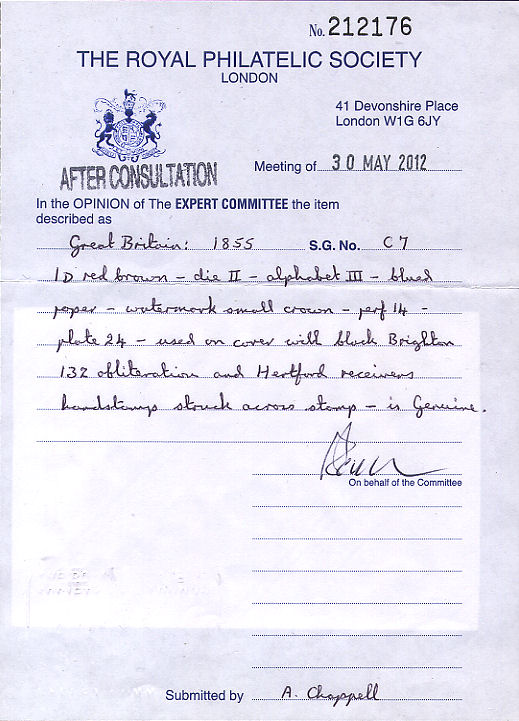 No. 212176
THE ROYAL PHILATELIC SOCIETY
LONDON
41 Devonshire Place
London W1G 6JY
AFTER CONSULTATION
Meeting of 30 MAY 2012
In the OPINION of The EXPERT COMMITTEE the item
described as
Great Britain: 1855 S.G. No. C7
1D red brown – die II – alphabet III – blued
paper – watermark small crown – perf 14 –
plate 24 – used on cover with black Brighton
132 obliteration and Hertford receivers
handstamp struck across stamp – is Genuine.
On behalf of the Committee
Submitted by A. Chappell